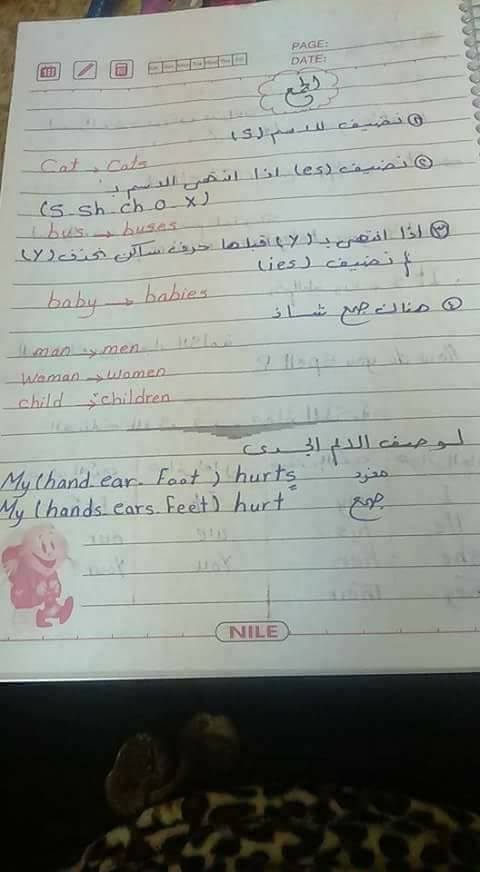 PAGE:
DATE:
الجمع
① نضيف للاسم (s)
Cat → Cats
② نضيف (es) اذا انتهى الاسم بـ
(s - sh - ch - o - x)
bus → buses
③ اذا انتهى بـ (y) قبلها حرف ساكن نحذف (y)
و نضيف (ies)
baby → babies
④ هناك جمع شاذ
man → men
Woman → women
child → children
لوصف الالم الجسدى
My (hand - ear - Foot) hurts مفرد
My (hands - ears - Feet) hurt جمع
NILE